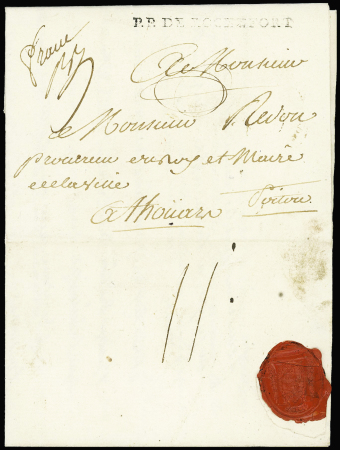 P.P. DE ROCHEFORT
franc
A Monsieur
Monsieur Redon
procureur du roy et Maire
de la ville
a thoüars
Poitou